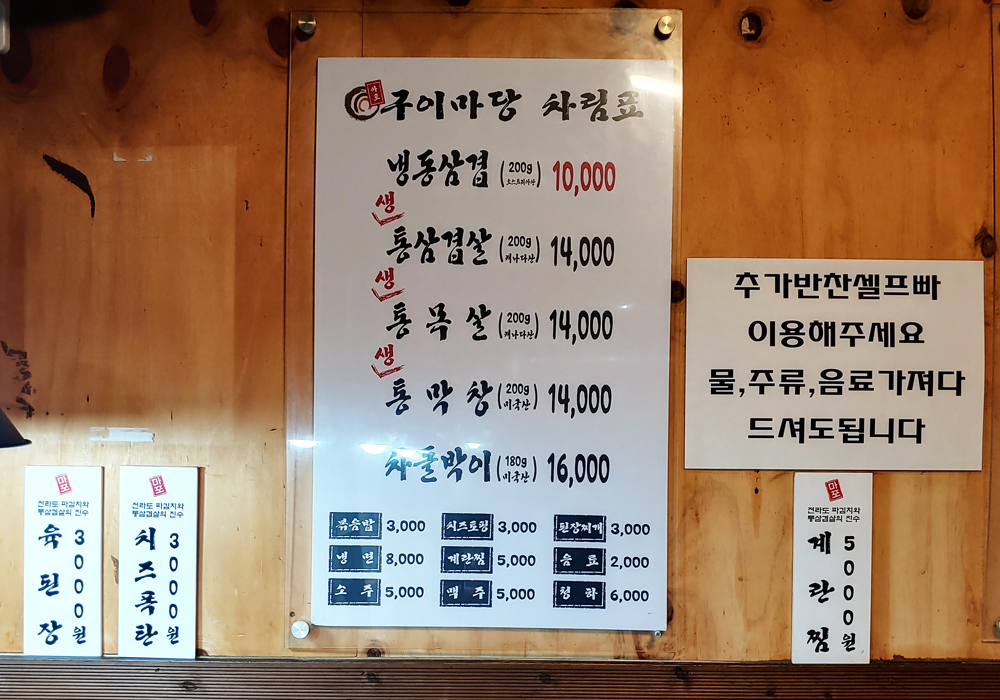 마포
구이마당 차림표
냉동삼겹 (200g 오스트리아산) 10,000
생
통삼겹살 (200g 캐나다산) 14,000
생
통목살 (200g 캐나다산) 14,000
생
통막창 (200g 미국산) 14,000
차돌박이 (180g 미국산) 16,000
볶음밥 3,000 치즈토핑 3,000 된장찌개 3,000
냉면 8,000 계란찜 5,000 음료 2,000
소주 5,000 맥주 5,000 청하 6,000
추가반찬셀프빠
이용해주세요
물,주류,음료가져다
드셔도됩니다
마포
전라도 파김치와
통삼겹살의 진수
육된장
3000원
마포
전라도 파김치와
통삼겹살의 진수
치즈폭탄
3000원
마포
전라도 파김치와
통삼겹살의 진수
계란찜
5000원